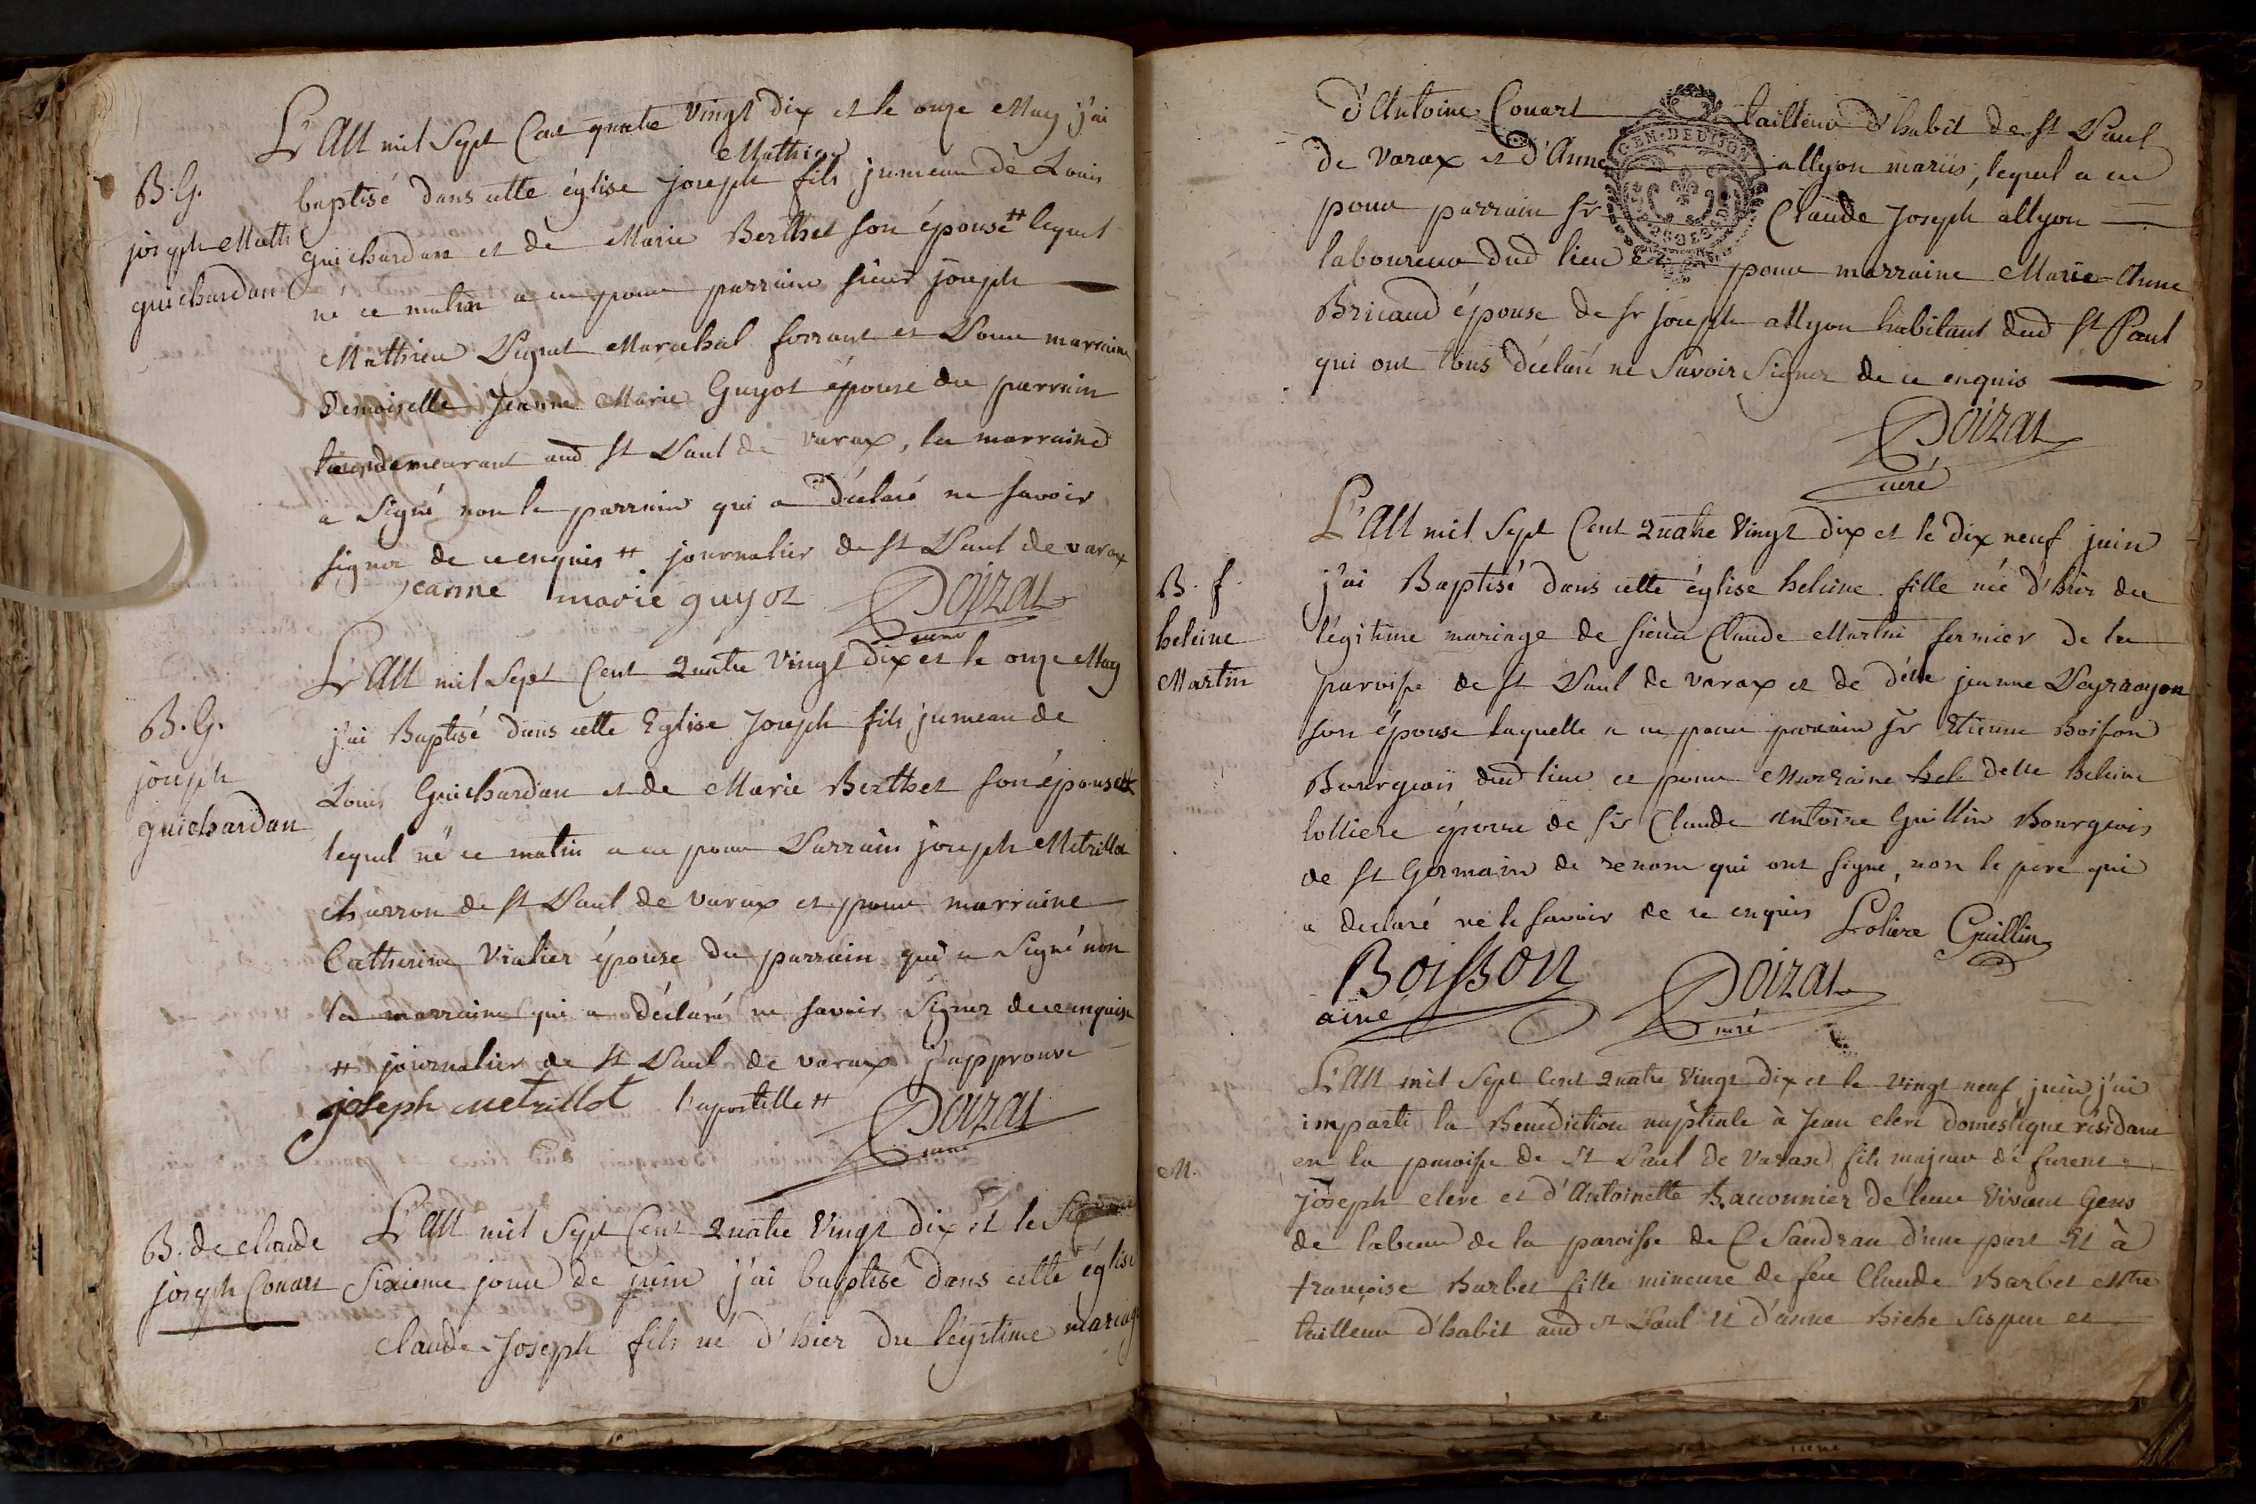 L'An mil Sept Cent quatre Vingt dix et le onze May j'ai
B. G.
joseph Math
guichardan
baptisé dans cette église joseph Mathieu fils jumeau de Louis
guichardan et de Marie Berthet son épouse # lequel
né ce matin a eu pour parrain sieur joseph
Mathieu Marechal ferrant et Pour marraine
Demoiselle Jeanne Marie Guyot épouse du parrain
demeurant aud St Paul de varax, la marraine
a Signé non le parrain qui a déclaré ne savoir
signer de ce enquis # journalier de St Paul de varax
jeanne marie guyot Poizat
curé
L'An mil Sept Cent Quatre Vingt dix et le onze May
B. G.
joseph
guichardan
j'ai Baptisé dans cette Eglise Joseph fils jumeau de
Louis Guichardan et de Marie Berthet son épouse #
lequel né ce matin a eu pour Parrain joseph Metrillot
charron de St Paul de varax et pour marraine
Catherine Vialier épouse du parrain qui a Signé non
la marraine qui a déclaré ne savoir Signer de ce enquise
# journalier de St Paul de varax j'approuve
joseph metrillot l'apostille # Poizat
curé
B. de claude
joseph Conart
L'An mil Sept Cent Quatre Vingt dix et le
Sixieme jour de juin j'ai baptisé dans cette église
Claude-Joseph fils né d'hier du légitime mariage
d'Antoine Conart tailleur d'habit de St Paul
de Varax et d'Anne allyon mariés, lequel a eu
pour parrain Sr Claude Joseph allyon
laboureur dud lieu Et pour marraine Marie-Anne
Bricaud épouse de Sr Joseph allyon habitant dud St Paul
qui ont tous déclaré ne Savoir Signer de ce enquis
Poizat
curé
L'An mil Sept Cent Quatre Vingt dix et le dix neuf juin
B. f.
heleine
Martin
j'ai Baptisé dans cette église heleine fille née d'hier du
légitime mariage de sieur Claude Martin fermier de la
paroisse de St Paul de varax et de delle jeanne
son épouse laquelle a eu pour parrain Sr Etienne Boisson
Bourgeois dud lieu et pour Marraine hel delle heleine
lolliere épouse de Sr Claude Antoine Guillin Bourgeois
de St Germain de renom qui ont signé, non le pere qui
a declaré ne le savoir de ce enquis Loliere Guillin
Boisson Poizat
ainé curé
L'An mil Sept Cent Quatre Vingt dix et le vingt neuf juin j'ai
M.
imparti la Benediction nuptiale à Jean clere domestique résidant
en la paroisse de St Paul de Varax fils majeur de
Joseph clere et d'Antoinette Baconnier de leur vivant Gens
de labeur de la paroisse de C Sandran d'une part Et à
françoise Barbet fille mineure de feu Claude Barbet Mtre
tailleur d'habit aud St Paul et d'anne et